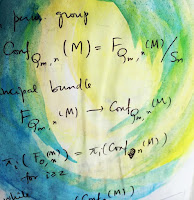 perm. group
Conf_{Q_m, n} (M) = F_{Q_m, n} (M) / S_n
ncipal bundle
F_{Q_m, n} (M) → Conf_{Q_m, n} (M)
π_i (F_{0, n}^{(m)}) = π_i (Conf_{0, n} (M))
for i≥2
while (M)